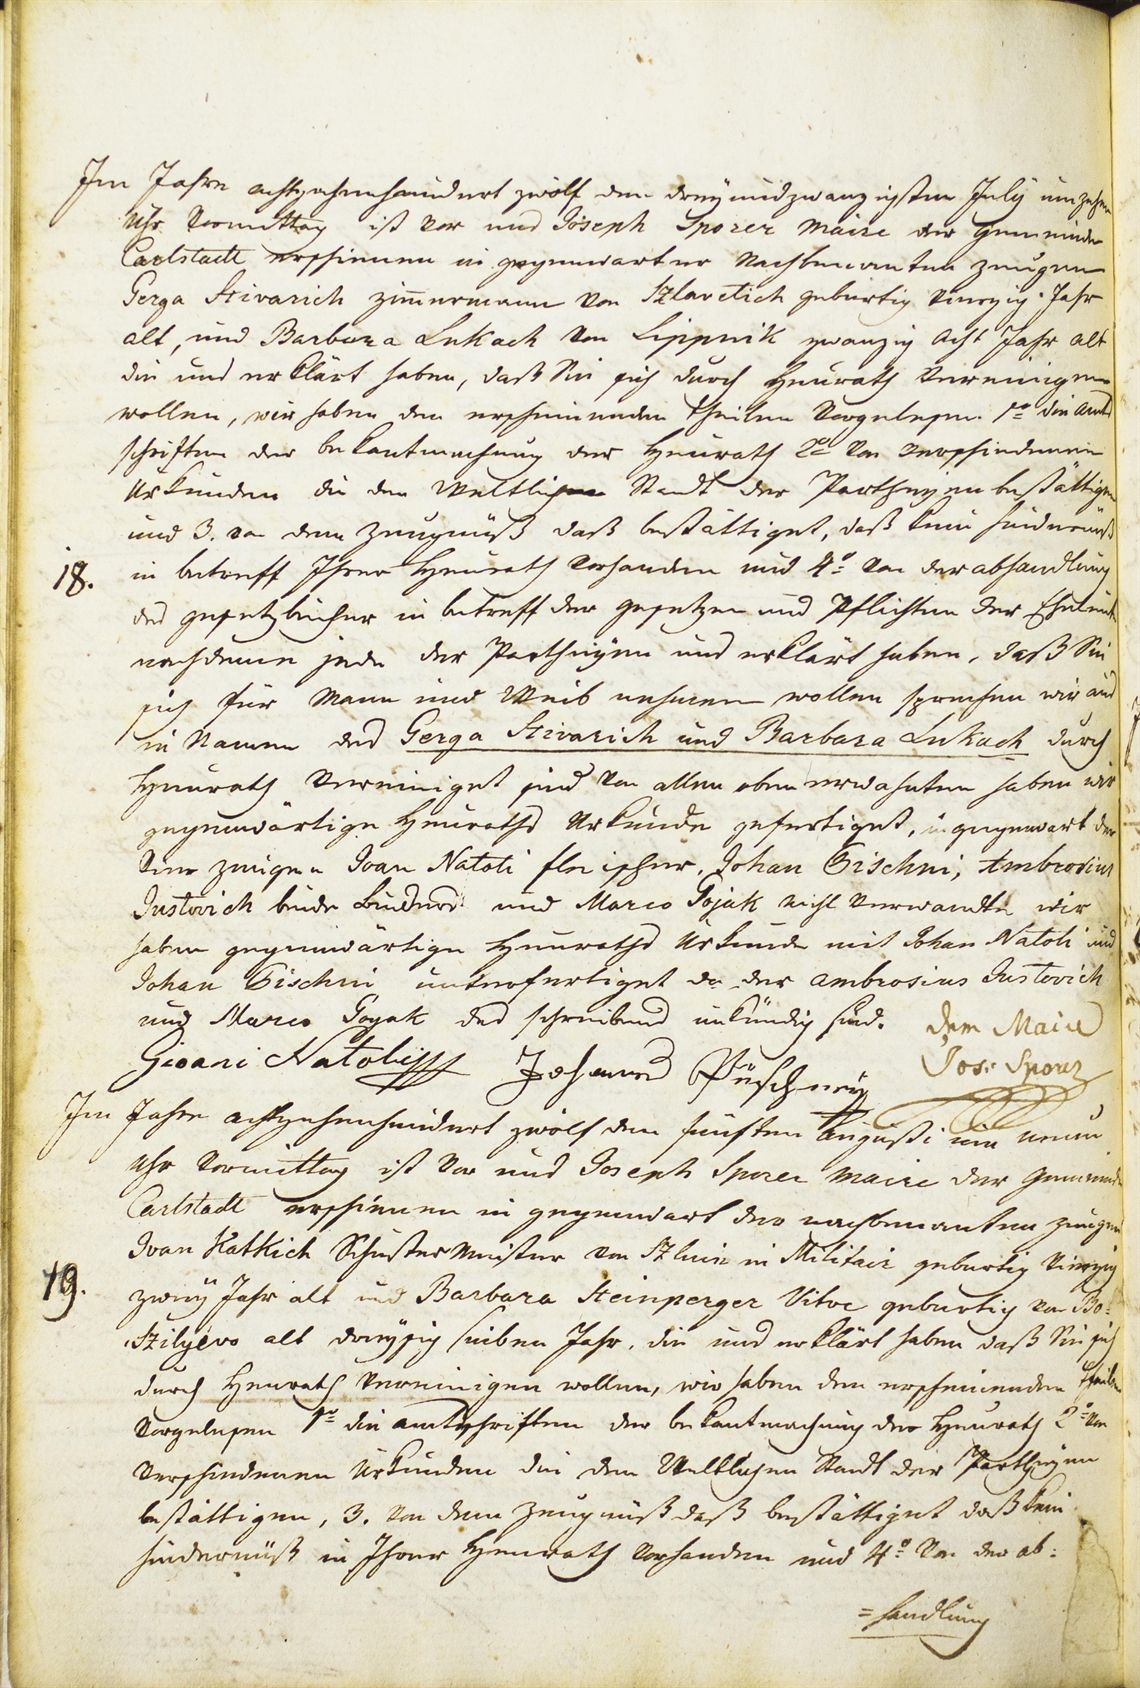 Im Jahre achtzehnhundert zwölf den dreyundzwanzigsten July um zehen
Uhr Vormittag ist vor uns Joseph Sporer Maire der Gemeinde
Carlstadt erschienen in gegenwart der Nachbenanten Zeugen
Gerga Stivarich Zimmermann von Szlavetich gebürtig Vierzig Jahr
alt, und Barbara Lukach von Lippnik zwanzig Acht Jahr alt
die uns erklärt haben, daß Sie sich durch Heurath Vereinigen
wollen, wir haben den erscheinenden theilen Vorgelesen 1o die Amts
schriften der bekantmachung der Heurath 2o von verschiedenen
Urkunden die den Weltlichen Stadt der Partheyen bestättigen
und 3. von dem Zeugnüß daß bestättiget, daß kein hindernüß
18. in betreff Ihrer Heurath Vorhanden und 4o von der abhandlung
des gesetzbucher in betreff der gesetzen und Pflichten der Eheleute
nachdeme jede der Partheyen uns erklärt haben, daß Sie
sich für Mann und Weib nehmen wollen sprechen wir aus
in Namen des Gerga Stivarich und Barbara Lukach durch
Heurath Vereiniget sind von allen oben erwahnten haben wir
gegenwärtige Heuraths Urkunde gefertiget, in gegenwart der
Vier Zeugen Ivan Natoli fleischer, Johan Bischni, Ambrosius
Justovich beide Binders und Marco Gojak nicht Verwandte wir
haben gegenwärtige Heuraths Urkunde mit Johan Natoli und
Johan Bischni unterfertiget da der Ambrosius Justovich
und Marco Goyak des schreibens unkündig sind.
dem Maire
Gioani Natoli Johanes Püschneÿ Jos: Sporer
Im Jahre achtzehenhundert zwölf den fünften Augusti um neun
Uhr Vormittag ist vor uns Joseph Sporer Maire der Gemeinde
Carlstadt erschienen in gegenwart der nachbenanten Zeugen
Ivan Katkich Schuster Meister von Szluin in Militair gebürtig Vierzig
19. zwey Jahr alt und Barbara Steinperger Vitve gebürtig von Bo-
Szilyevo alt dreyßig sieben Jahr, die uns erklärt haben daß Sie sich
durch Heurath Vereinigen wollen, wir haben den erscheinenden theilen
Vorgelesen 1o die Amtschriften der bekantmachung der Heurath 2o von
Verschiedenen Urkunden die den Weltlichen Stadt der Partheyen
bestättigen, 3. von dem Zeugnüß daß bestättiget daß kein
hindernüß in Ihrer Heurath Vorhanden und 4o von der ab:
=handlung